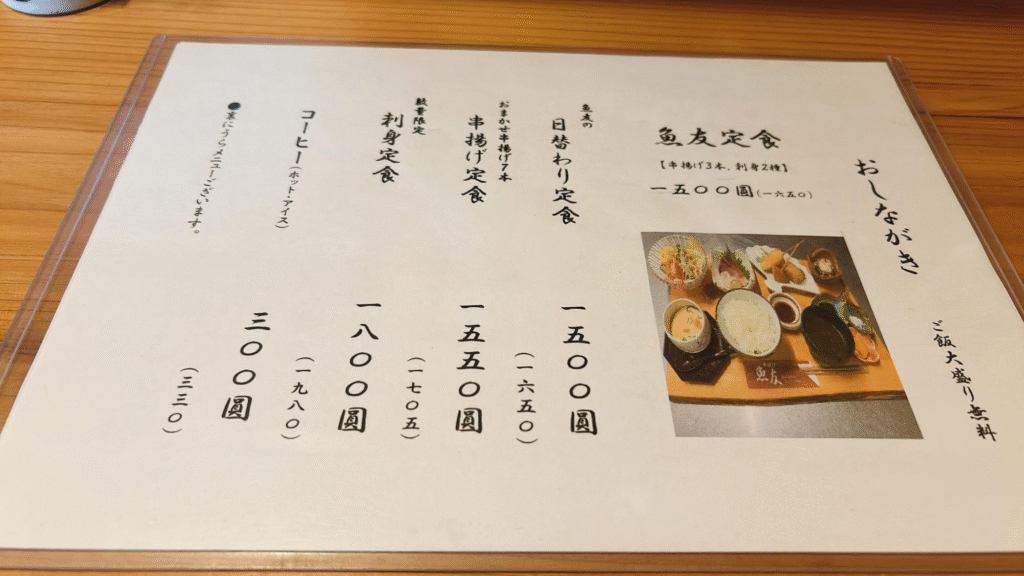 おしながき
ご飯大盛り無料
魚友定食
【串揚げ3本、刺身2種】
一五〇〇圓(一六五〇)
魚友
魚友の
日替わり定食
一五〇〇圓
(一六五〇)
おまかせ串揚げ7本
串揚げ定食
一五五〇圓
(一七〇五)
数量限定
刺身定食
一八〇〇圓
(一九八〇)
コーヒー(ホット・アイス)
三〇〇圓
(三三〇)
●裏にうらメニューございます。